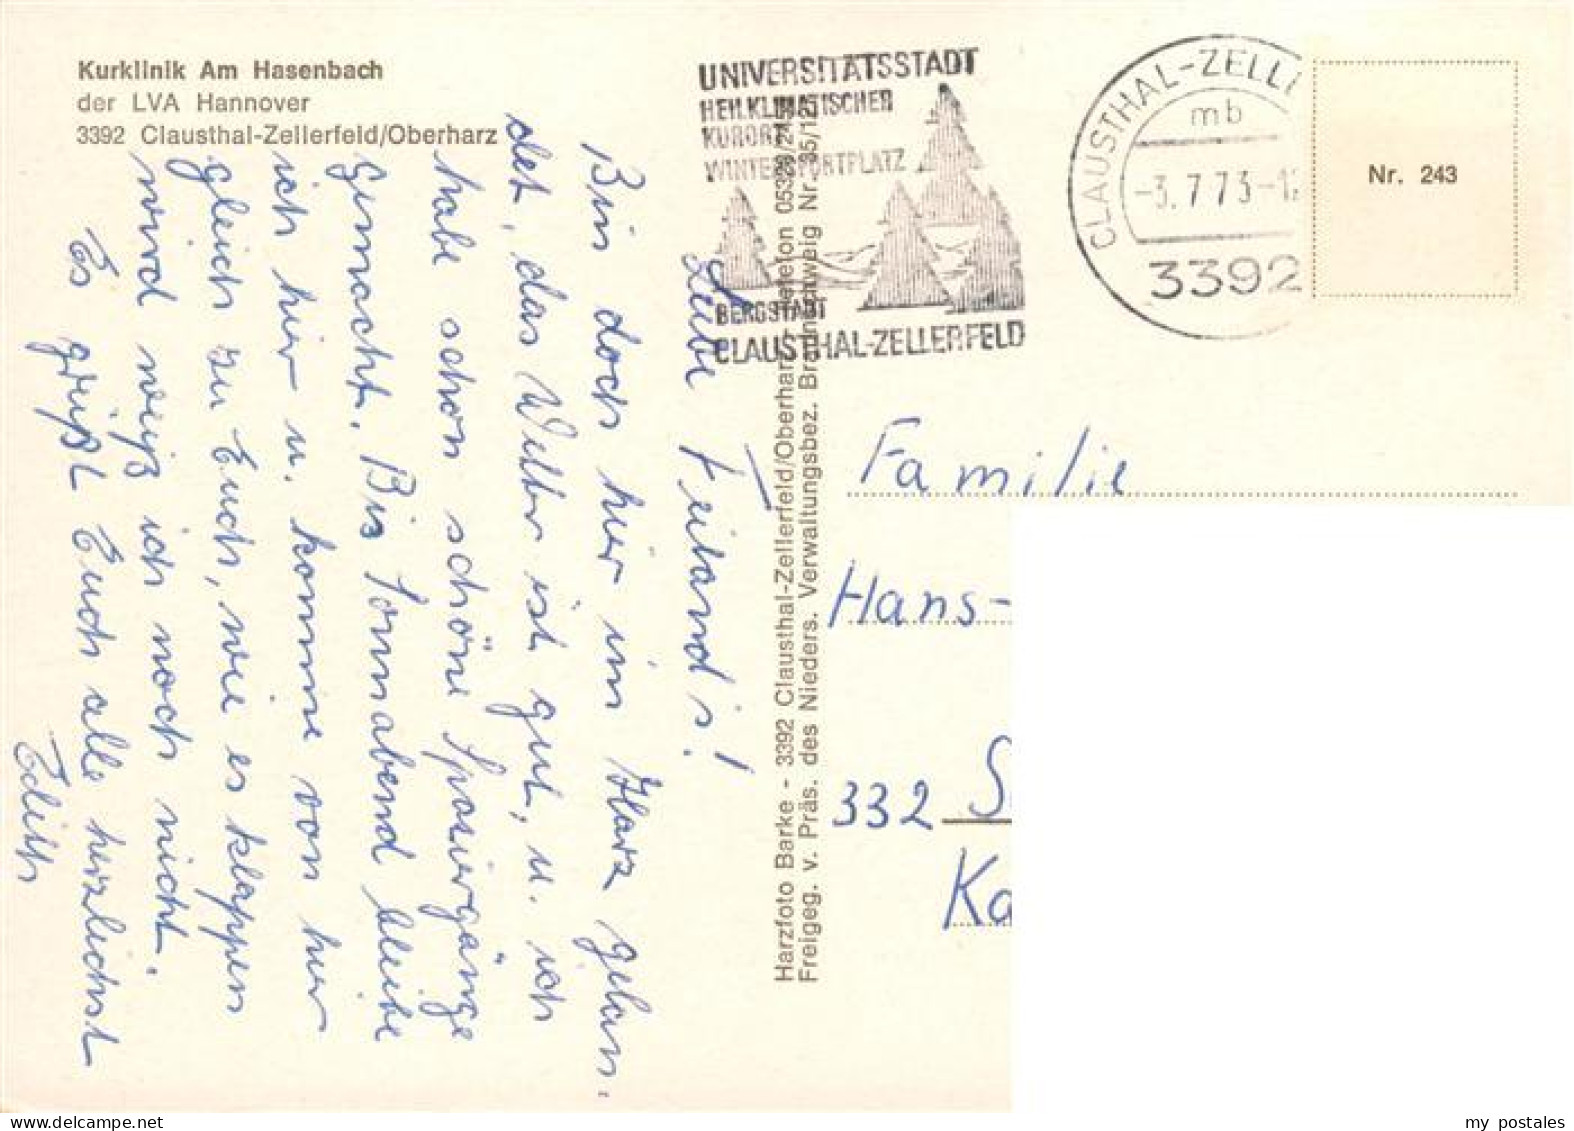 Kurklinik Am Hasenbach
der LVA Hannover
3392 Clausthal-Zellerfeld/Oberharz
UNIVERSITÄTSSTADT
HEILKLIMATISCHER
KURORT
WINTERSPORTPLATZ
BERGSTADT
CLAUSTHAL-ZELLERFELD
CLAUSTHAL-ZELL
mb
-3.7.73-12
3392
Nr. 243
Liebe Keiland's!
Bin doch hier im Harz gelan-
det, das Wetter ist gut, u. ich
habe schon schöne Spaziergänge
gemacht. Bis Sonnabend bleibe
ich hier u. komme von hier
gleich zu Euch, wie es klappen
wird weiß ich noch nicht.
Es grüßt Euch alle herzlichst
Edith
Harzfoto Barke - 3392 Clausthal-Zellerfeld/Oberharz
Freigeg. v. Präs. des Nieders. Verwaltungsbez. Braunschweig Nr.
Familie
Hans-
332 S
Ka
my postales
www.delcampe.net